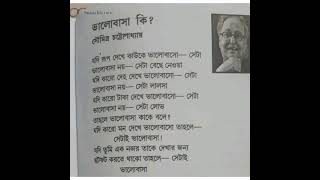 ভালোবাসা কি?
সৌমিত্র চট্টোপাধ্যায়
যদি রূপ দেখে কাউকে ভালোবাসো— সেটা
ভালোবাসা নয়— সেটা বেছে নেওয়া
যদি কারো দেহ দেখে ভালোবাসো— সেটা
ভালোবাসা নয়— সেটা লালসা
যদি কারো টাকা দেখে ভালোবাসো— সেটা
ভালোবাসা নয়— সেটা লোভ
তাহলে ভালোবাসা কাকে বলে?
যদি কারো মন দেখে ভালোবাসো তাহলে—
সেটাই ভালোবাসা।
যদি তুমি এক নজর তাকে দেখার জন্য
ছটফট করতে থাকো তাহলে— সেটাই
ভালোবাসা